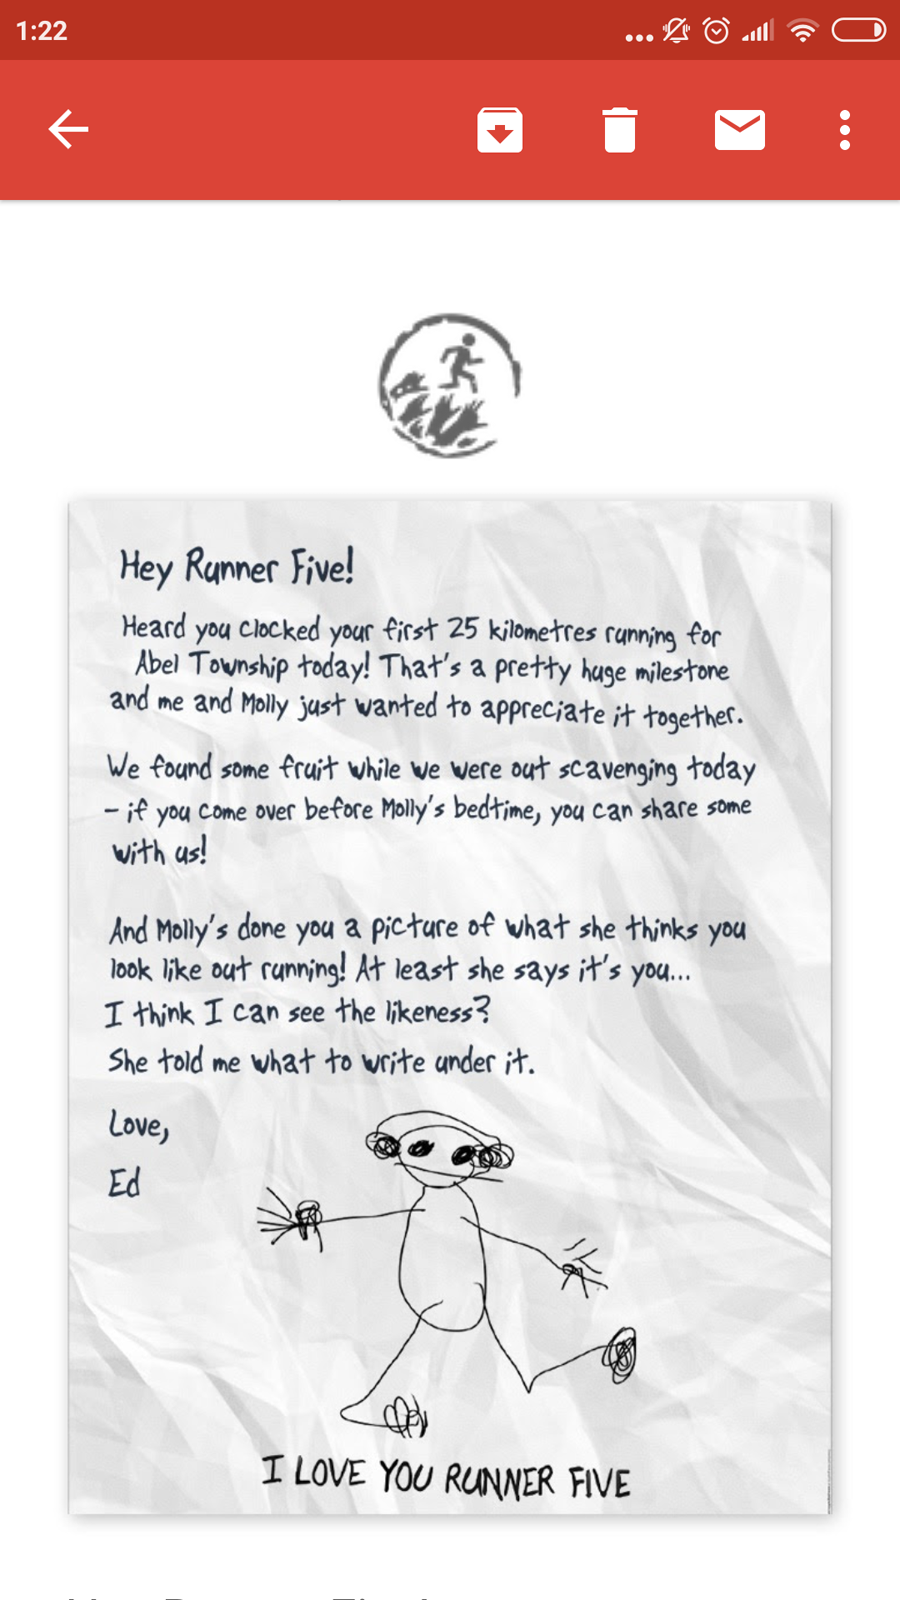 1:22
Hey Runner Five!
Heard you clocked your first 25 kilometres running for
Abel Township today! That's a pretty huge milestone
and me and Molly just wanted to appreciate it together.
We found some fruit while we were out scavenging today
– if you come over before Molly's bedtime, you can share some
with us!
And Molly's done you a picture of what she thinks you
look like out running! At least she says it's you...
I think I can see the likeness?
She told me what to write under it.
Love,
Ed
I LOVE YOU RUNNER FIVE